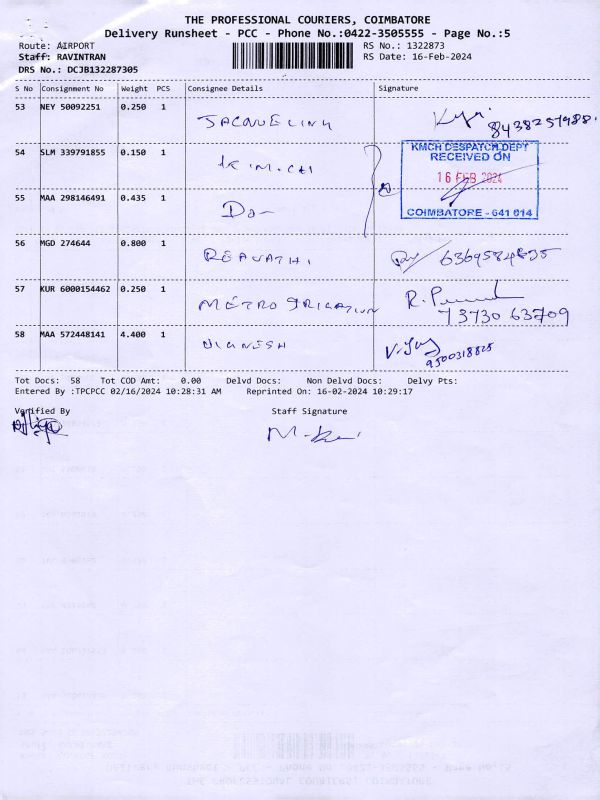 THE PROFESSIONAL COURIERS, COIMBATORE
Delivery Runsheet - PCC - Phone No.:0422-3505555 - Page No.:5
Route: AIRPORT RS No.: 1322873
Staff: RAVINTRAN RS Date: 16-Feb-2024
DRS No.: DCJB132287305
S No Consignment No Weight PCS Consignee Details Signature
53 NEY 50092251 0.250 1 JACQUELINH 8438257988
54 SLM 339791855 0.150 1
KMCH DESPATCH DEPT
RECEIVED ON
16 FEB 2024
COIMBATORE - 641 014
55 MAA 298146491 0.435 1 Do-
56 MGD 274644 0.800 1 REAVATHI 6369584835
57 KUR 6000154462 0.250 1 METRO IRIGATION
73730 63709
58 MAA 572448141 4.400 1 VIGNESH
9500318825
Tot Docs: 58 Tot COD Amt: 0.00 Delvd Docs: Non Delvd Docs: Delvy Pts:
Entered By :TPCPCC 02/16/2024 10:28:31 AM Reprinted On: 16-02-2024 10:29:17
Verified By Staff Signature